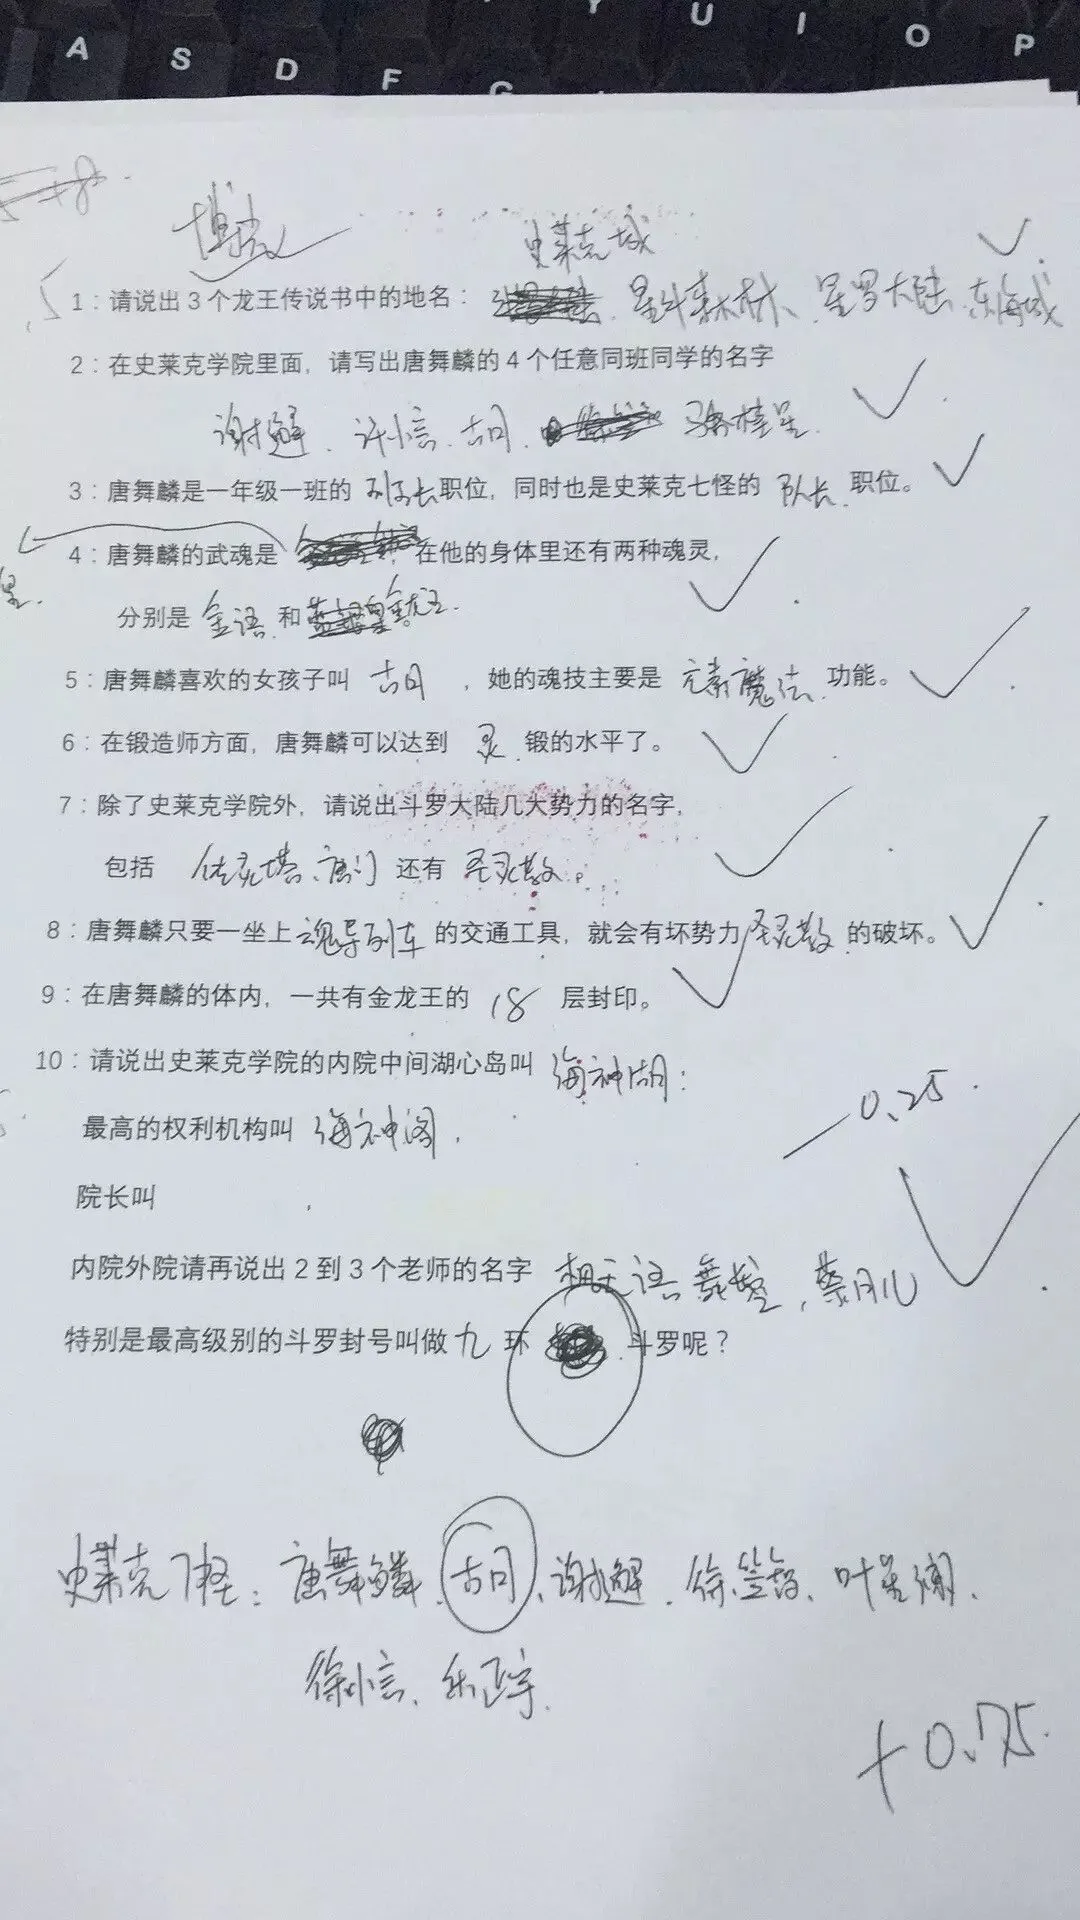 A S D F G Y U I O P
史莱克城
1：请说出3个龙王传说书中的地名： 星斗森林、星罗大陆、东海城
2：在史莱克学院里面，请写出唐舞麟的4个任意同班同学的名字
谢邂、许小言、古月、骆桂星.
3：唐舞麟是一年级一班的 班长 职位，同时也是史莱克七怪的 队长 职位。
4：唐舞麟的武魂是 ，在他的身体里还有两种魂灵，
分别是 金语 和 金龙王.
5：唐舞麟喜欢的女孩子叫 古月 ，她的魂技主要是 元素魔法 功能。
6：在锻造师方面，唐舞麟可以达到 灵 锻的水平了。
7：除了史莱克学院外，请说出斗罗大陆几大势力的名字，
包括 传灵塔、唐门 还有 圣灵教。
8：唐舞麟只要一坐上 魂导列车 的交通工具，就会有坏势力 圣灵教 的破坏。
9：在唐舞麟的体内，一共有金龙王的 18 层封印。
10：请说出史莱克学院的内院中间湖心岛叫 海神湖：
-0.25
最高的权利机构叫 海神阁，
院长叫
内院外院请再说出2到3个老师的名字 舞长空，蔡月儿
特别是最高级别的斗罗封号叫做 九 环 斗罗呢？
史莱克7怪：唐舞麟、古月、谢邂、徐笠智、叶星澜、
徐小言、乐正宇.
+0.75.